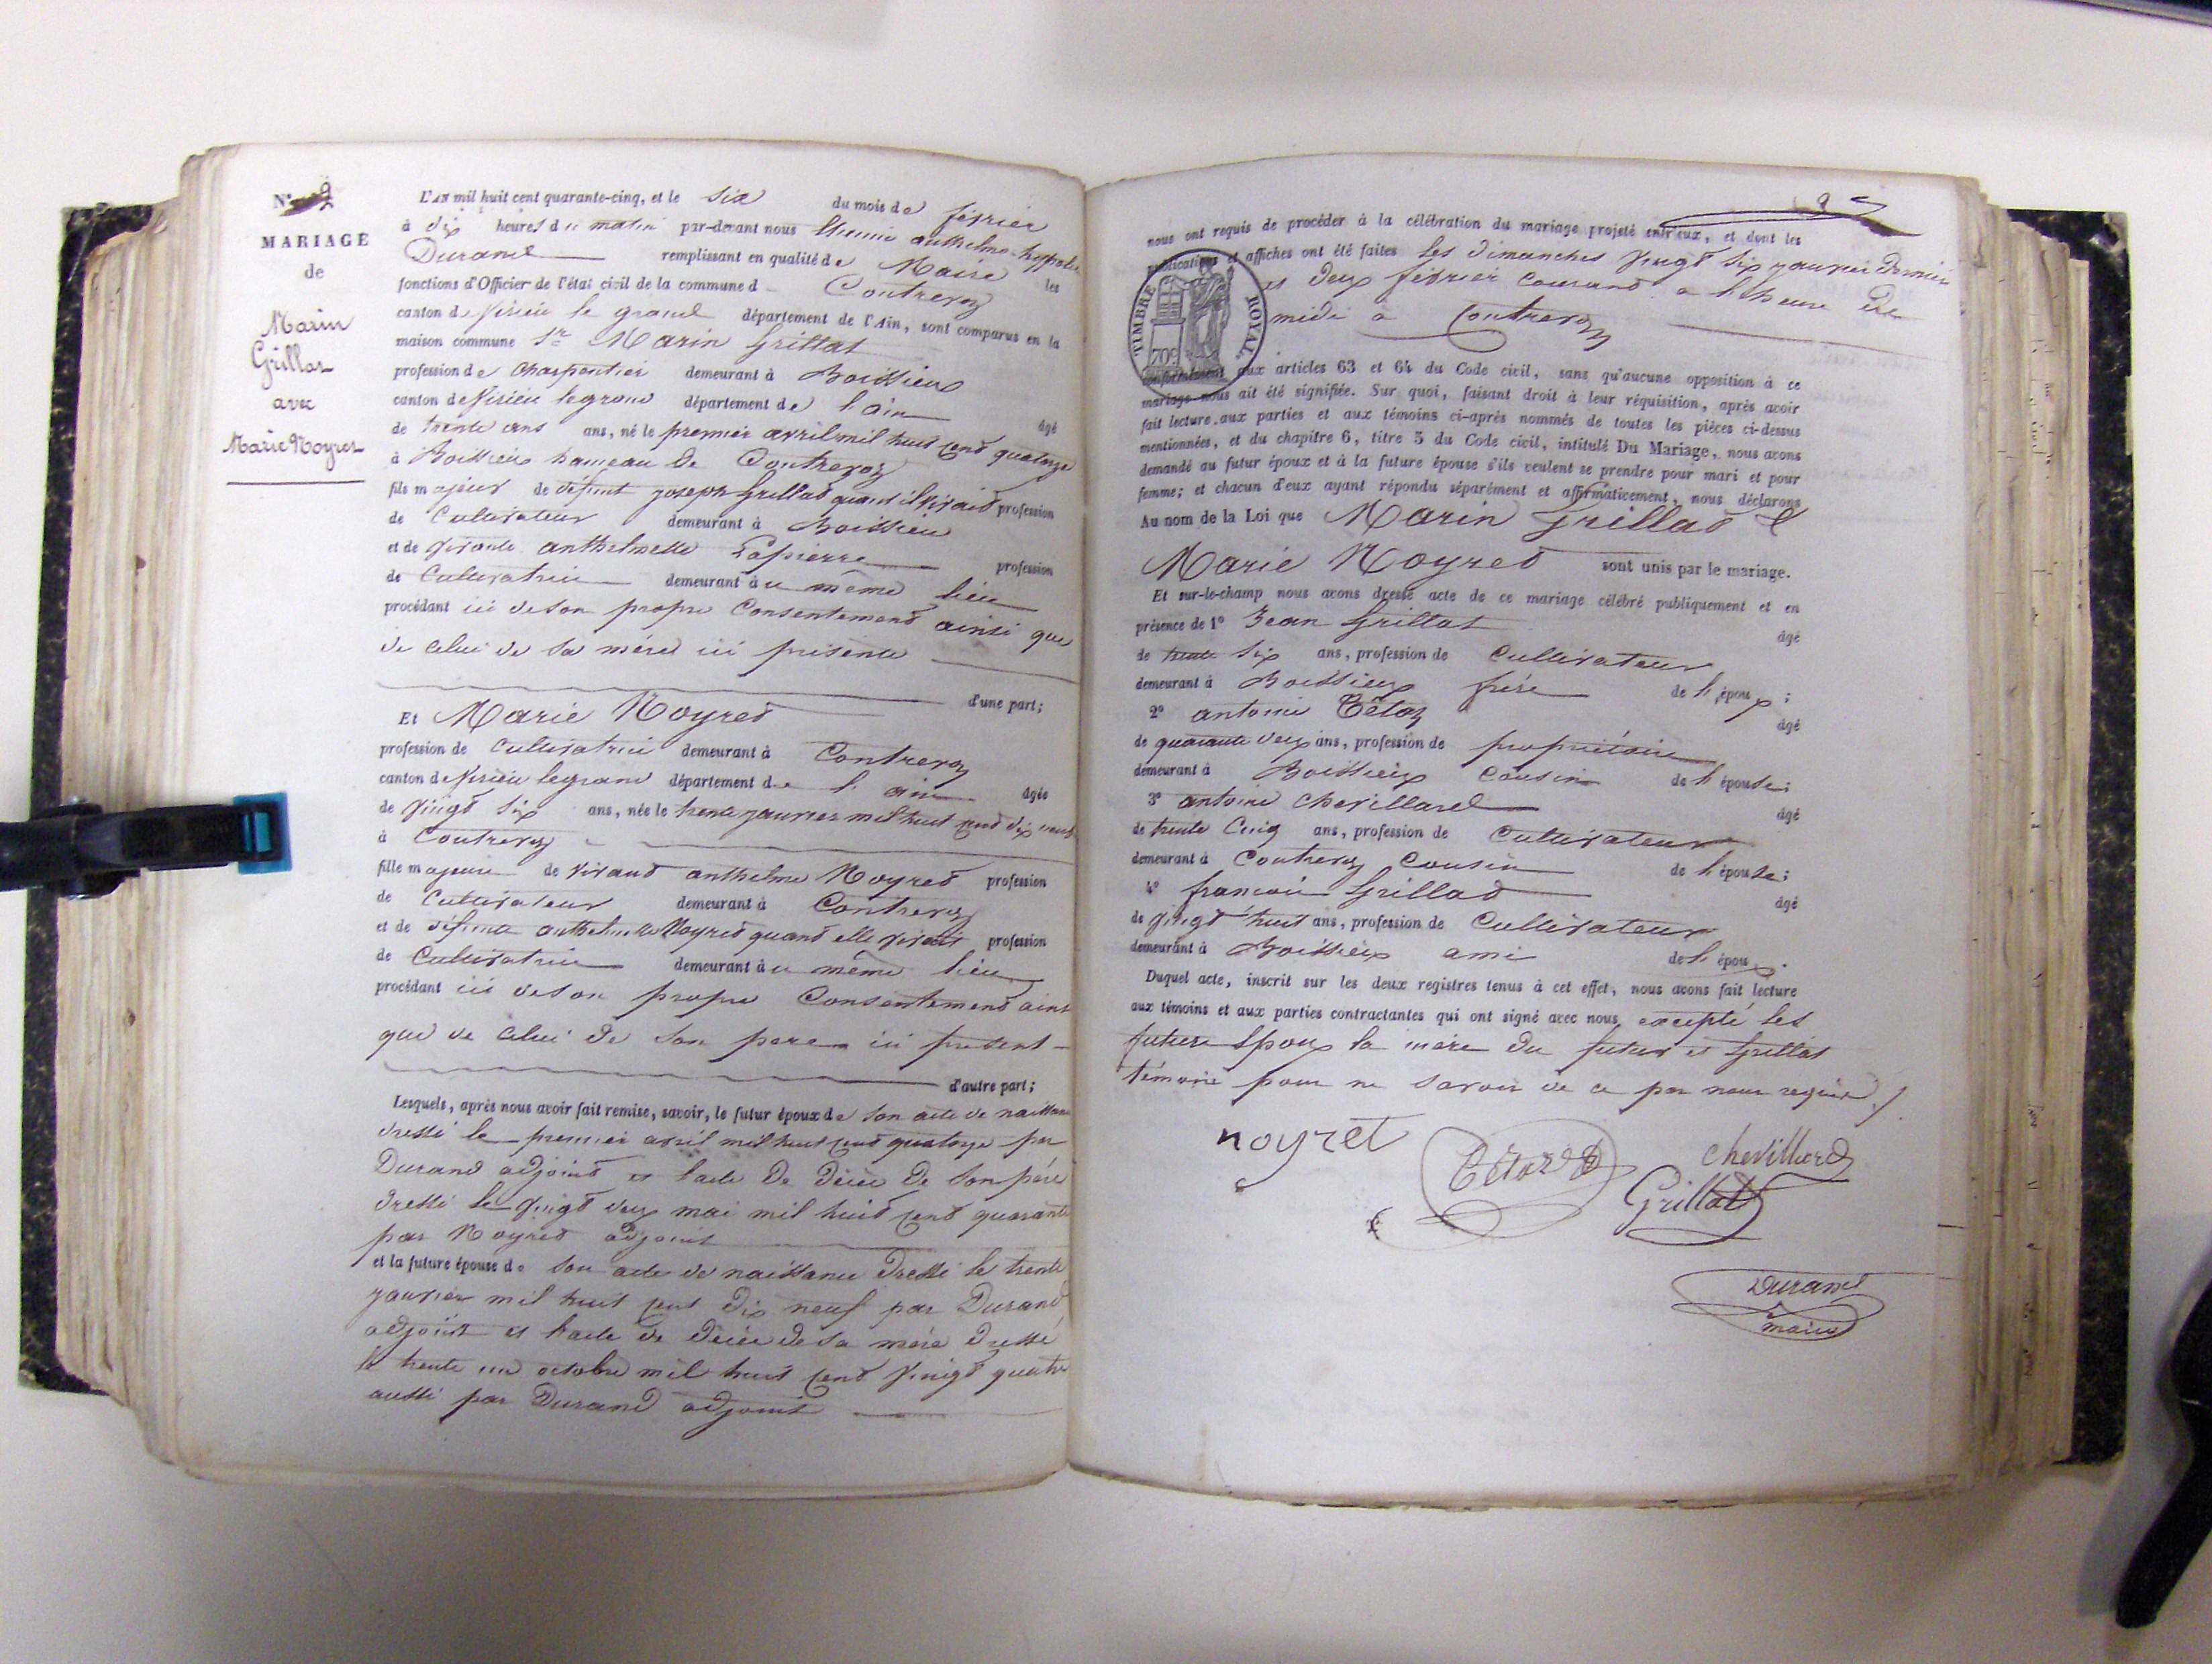 N° 2
MARIAGE
de
Marin
Grillat
avec
Marie Noyret
L'AN mil huit cent quarante-cinq, et le six du mois de février
à dix heures du matin par-devant nous anthelme hyppolite
Durand remplissant en qualité de Maire les
fonctions d'Officier de l'état civil de la commune d Contrevoz
canton de Virieu le grand département de l'Ain, sont comparus en la
maison commune 1° Marin Grillat
profession de Charpentier demeurant à Boissieux
canton de Virieu legrand département de l'ain âgé
de trente ans ans, né le premier avril mil huit cent quatorze
à Boissieux hameau de Contrevoz
fils majeur de défunt joseph Grillat quand il vivait profession
de Cultivateur demeurant à Boissieu
et de vivante anthelmette Lapierre profession
de Cultivatrice demeurant àu même lieu
procédant ici de son propre Consentement ainsi que
de celui de sa mére ici présente
d'une part;
Et Marie Noyret
profession de Cultivatrice demeurant à Contrevoz
canton de Virieu legrand département de l'ain âgée
de vingt six ans, née le trente janvier mil huit cent dix neuf
à Contrevoz
fille majeure de vivant anthelme Noyret profession
de Cultivateur demeurant à Contrevoz
et de défunte anthelmette Noyret quand elle vivait profession
de Cultivatrice demeurant àu même lieu
procédant ici de son propre Consentement ainsi
que de celui de son pere ici present
d'autre part;
Lesquels, après nous avoir fait remise, savoir, le futur époux de son acte de naissance
dressé le premier avril mil huit cent quatorze par
Durand adjoint et l'acte de décès de son pére
dressé le vingt deux mai mil huit cent quarante
par Noyret adjoint
et la future épouse de son acte de naissance dressé le trente
janvier mil huit cent dix neuf par Durand
adjoint et l'acte de décès de sa mére dressé
le trente un octobre mil huit cent vingt quatre
aussi par Durand adjoint
nous ont requis de procéder à la célébration du mariage projeté entr'eux, et dont les
publications et affiches ont été faites les dimanches vingt six janvier dernier
et deux février courant a l'heure de
midi à Contrevoz
TIMBRE ROYAL
70c
conformément aux articles 63 et 64 du Code civil, sans qu'aucune opposition à ce
mariage nous ait été signifiée. Sur quoi, faisant droit à leur réquisition, après avoir
fait lecture aux parties et aux témoins ci-après nommés de toutes les pièces ci-dessus
mentionnées, et du chapitre 6, titre 5 du Code civil, intitulé Du Mariage, nous avons
demandé au futur époux et à la future épouse s'ils veulent se prendre pour mari et pour
femme; et chacun d'eux ayant répondu séparément et affirmativement, nous déclarons
Au nom de la Loi que Marin Grillat &
Marie Noyret sont unis par le mariage.
Et sur-le-champ nous avons dressé acte de ce mariage célébré publiquement et en
présence de 1° Jean Grillat âgé
de trente six ans, profession de Cultivateur
demeurant à Boissieux frére de l'époux;
2° antoine Tétaz âgé
de quarante deux ans, profession de propriétaire
demeurant à Boissieux Cousin de l'épouse;
3° antoine Chevillard âgé
de trente Cinq ans, profession de Cultivateur
demeurant à Contrevoz Cousin de l'épouse;
4° francois Grillat âgé
de vingt huit ans, profession de Cultivateur
demeurant à Boissieux ami de l'époux.
Duquel acte, inscrit sur les deux registres tenus à cet effet, nous avons fait lecture
aux témoins et aux parties contractantes qui ont signé avec nous excepté les
futurs Epoux la mére du futur et Grillat
témoin pour ne savoir de ce par nous requis
noyret
Chevillard
Grillat
Durand
maire